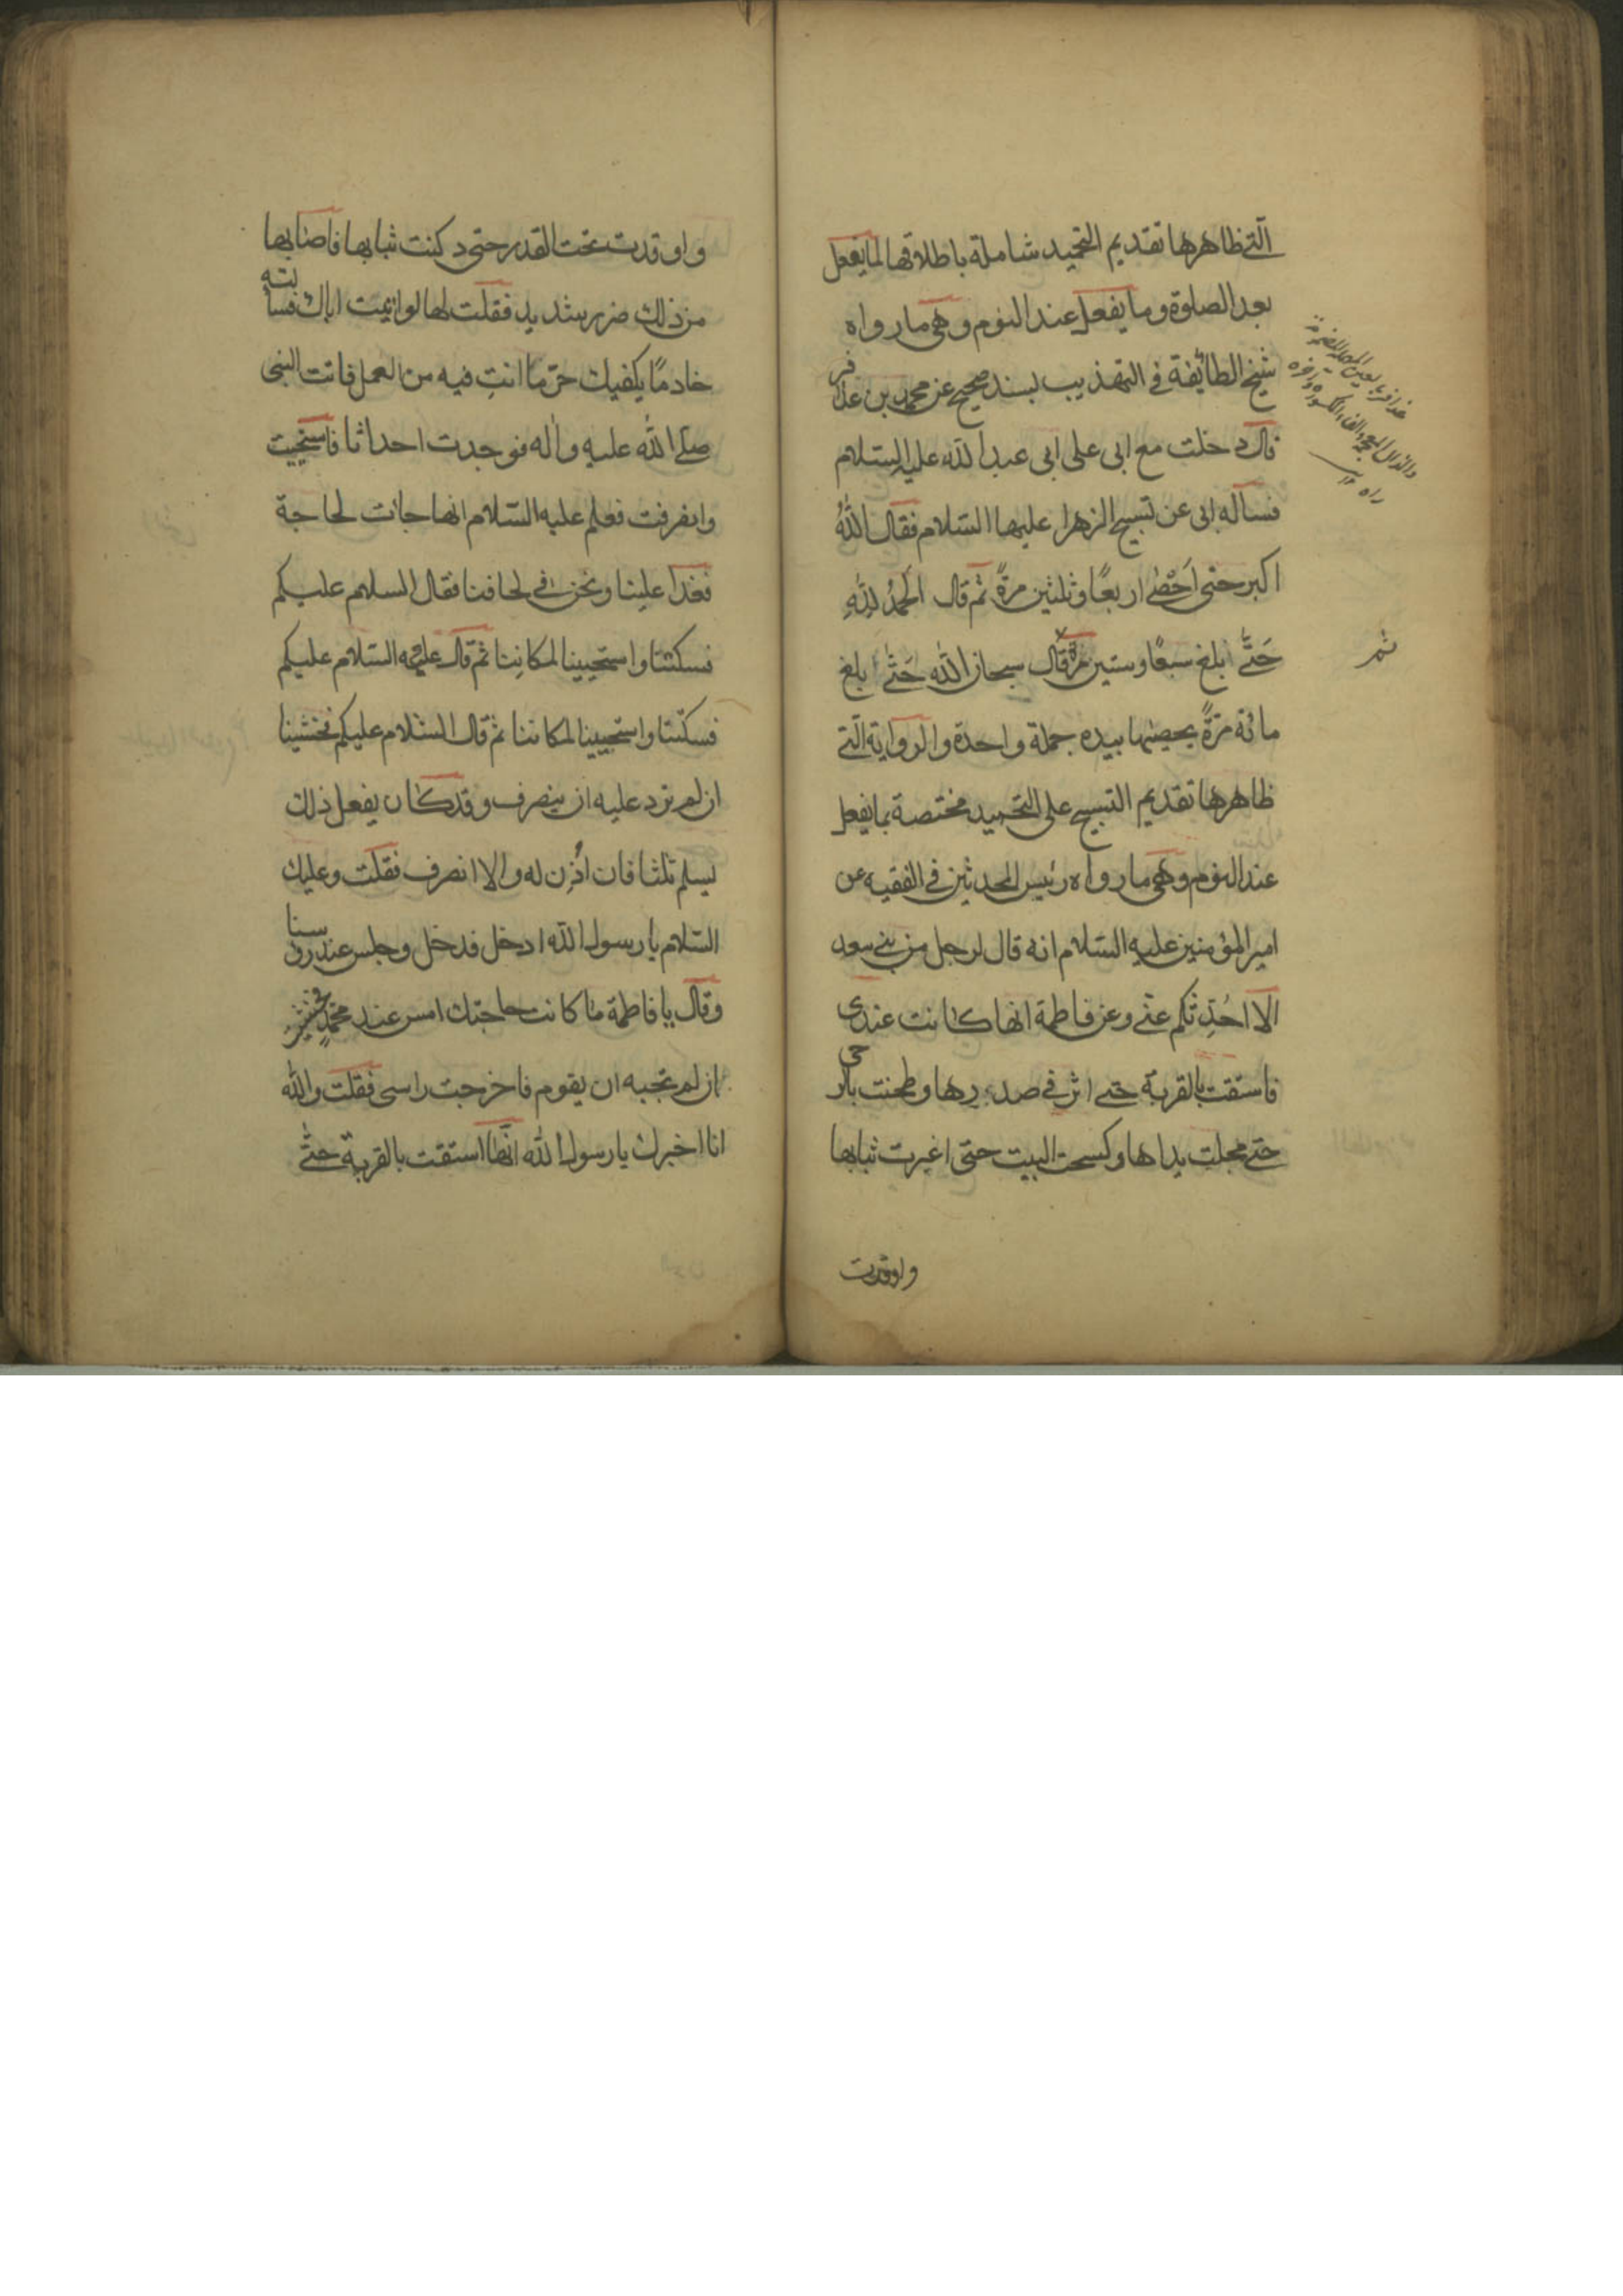 الّتى ظاهرها تقديم التحميد شاملة باطلاقها لما يفعل
بعد الصلوة وما يفعل عند النوم وهى ما رواه
شيخ الطائفة فى التهذيب بسند صحيح عن محمد بن عذافر
قال دخلت مع ابى على ابى عبد الله عليه السّلام
فسأله ابى عن تسبيح الزهرا عليها السّلام فقال اللّٰهُ
اكبر حتى اَحْصٰى اربعًا وثلثين مرةً ثم قال الحمدُ لِلّٰهِ
حَتّٰى بلغ سبعًا وستين مرة قال سبحان اللّٰه حَتّٰى بلغ
مائة مرّةً يحصيها بيده جملة واحدة والرواية الّتى
ظاهرها تقديم التسبيح على التحميد مختصة بما يفعل
عند النوم وهى ما رواه رئيس المحدثين فى الفقيه عن
امير المؤمنين عليه السّلام انه قال لرجل من بنى سعد
الا اُحدِّثكم عنّى وعن فاطمة انها كانت عندى
فاستقت بالقربة حتى اثر فى صدرها وطحنت بالرحى
حتى مجلت يداها وكسحت البيت حتى اغبرت ثيابها
واوقدت
عذافر بالعين المهملة المضمومة
والذال المعجمة والفاء المكسورة
ثم
واوقدت تحت القدر حتى دكنت ثيابها فاصابها
من ذلك ضرر شديد فقلت لها لو اتيت اباك فسألته
خادمًا يكفيك حرّ ما انتِ فيه من العمل فاتت النبى
صلى اللّٰه عليه واٰله فوجدت احداثا فاستحيت
وانصرفت فعلم عليه السّلام انها جائت لحاجة
فغدا علينا ونحن فى لحافنا فقال السلام عليكم
فسكتنا واستحيينا لمكاننا ثم قال عليه السّلام عليكم
فسكتنا واستحيينا لمكاننا ثم قال السّلام عليكم فخشينا
ان لم نرد عليه ان ينصرف وقد كان يفعل ذلك
يسلم ثلثا فان اُذِن له والا انصرف فقلت وعليك
السّلام يا رسول اللّٰه ادخل فدخل وجلس عند رؤسنا
وقال يا فاطمة ما كانت حاجتك امس عند محمّدٍ فخشيت
ان لم نجبه ان يقوم فاخرجت راسى فقلت واللّٰه
انا اخبرك يا رسول اللّٰه انّها استقت بالقربة حتّى